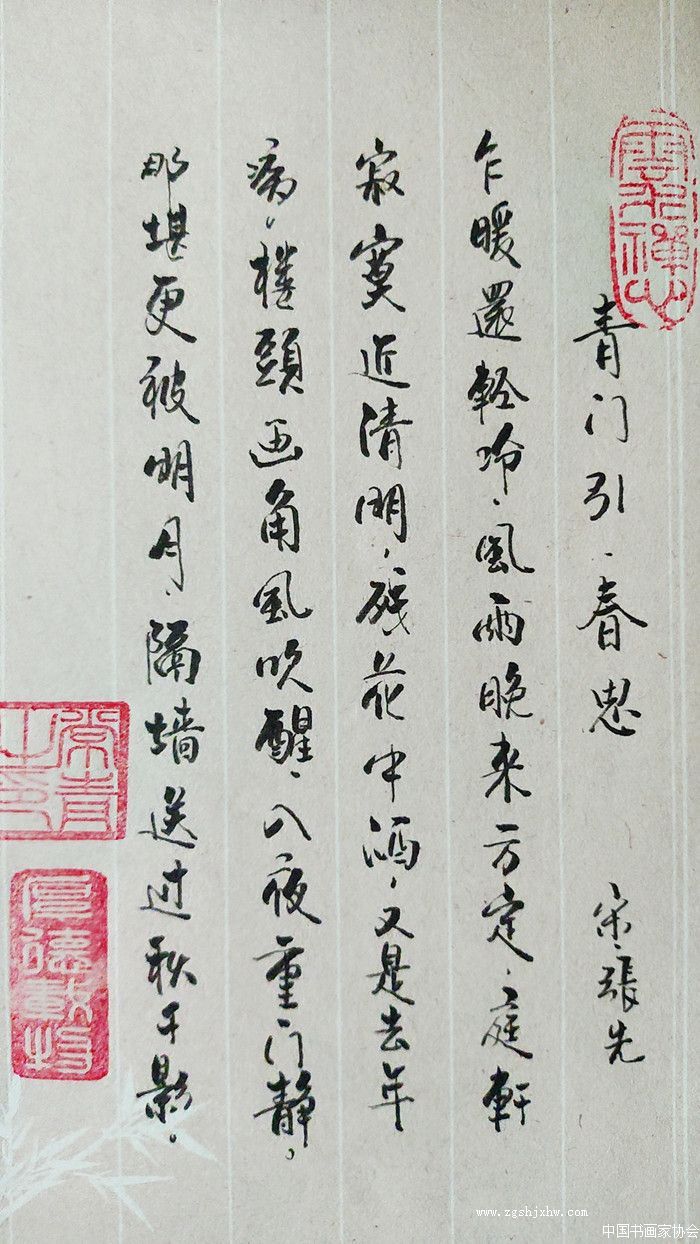 青门引、春思 宋、張先
乍暖還輕冷、風雨晚来方定、庭軒
寂寞近清明，残花中酒，又是去年
病。楼頭画角風吹醒、入夜重门静。
那堪更被明月、隔墙送过秋千影。
常青之印
厚德載物
www.zgshjxhw.com
中国书画家协会